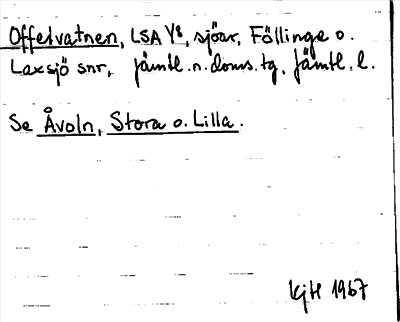 Offervatnen, LSA Y8, sjöar, Föllinge o.
Laxsjö snr, Jämtl. n. doms. tg, Jämtl. l.
Se Åvoln, Stora o. Lilla.
KjH 1967